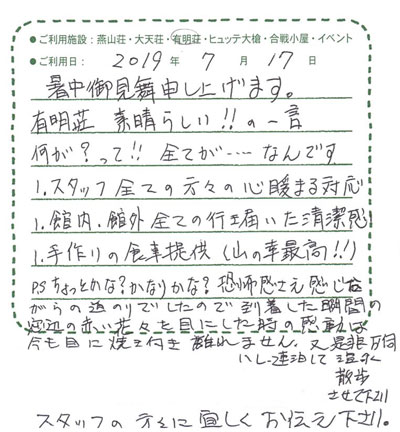 ●ご利用施設：燕山荘・大天荘・有明荘・ヒュッテ大槍・合戦小屋・イベント
●ご利用日： 2019 年 7 月 17 日
暑中御見舞申し上げます。
有明荘 素晴らしい!!の一言
何が？って!! 全てが‥‥なんです
1.スタッフ全ての方々の心暖まる対応
1.館内、館外全ての行き届いた清潔感
1.手作りの食事提供（山の幸最高!!）
P.S ちょっとかな？かなりかな？恐怖感さえ感じな
がらの道のりでしたので到着した瞬間の
の赤い花々を目にした時の感動は
今も目に焼き付き離れません。又是非伺
いし連泊して
散歩
させて下さい
スタッフの方々に宜しくお伝え下さい。